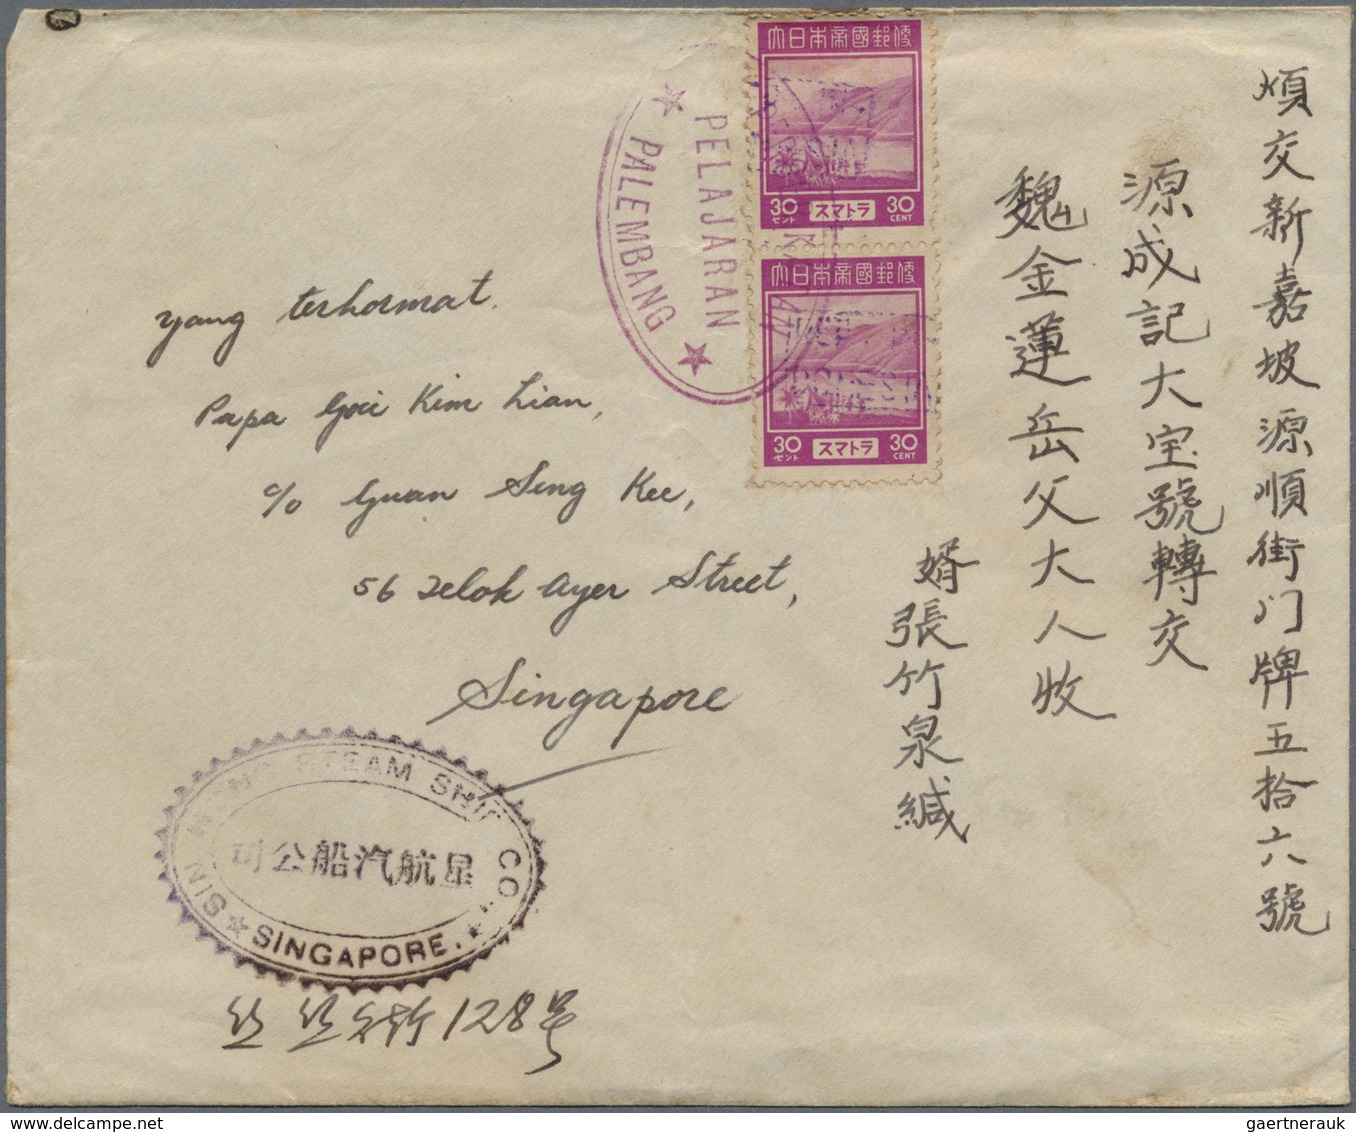 內日本帝國郵便
30 センド スマトラ 30 CENT
內日本帝國郵便
30 セント スマトラ 30 CENT
PELAJARAN
★ PALEMBANG ★
煩交新嘉坡源順街门牌五拾六號
源成記大宝號轉交
魏金蓮岳父大人收
婿張竹泉緘
yang terhormat.
Papa Goei Kim Lian,
c/o Guan Sing Kee,
56 Telok Ayer Street,
Singapore
SIN HENG STEAM SHIP CO.
司公船汽航星
★ SINGAPORE. ★
128号
gaertnerauk
delcampe.net